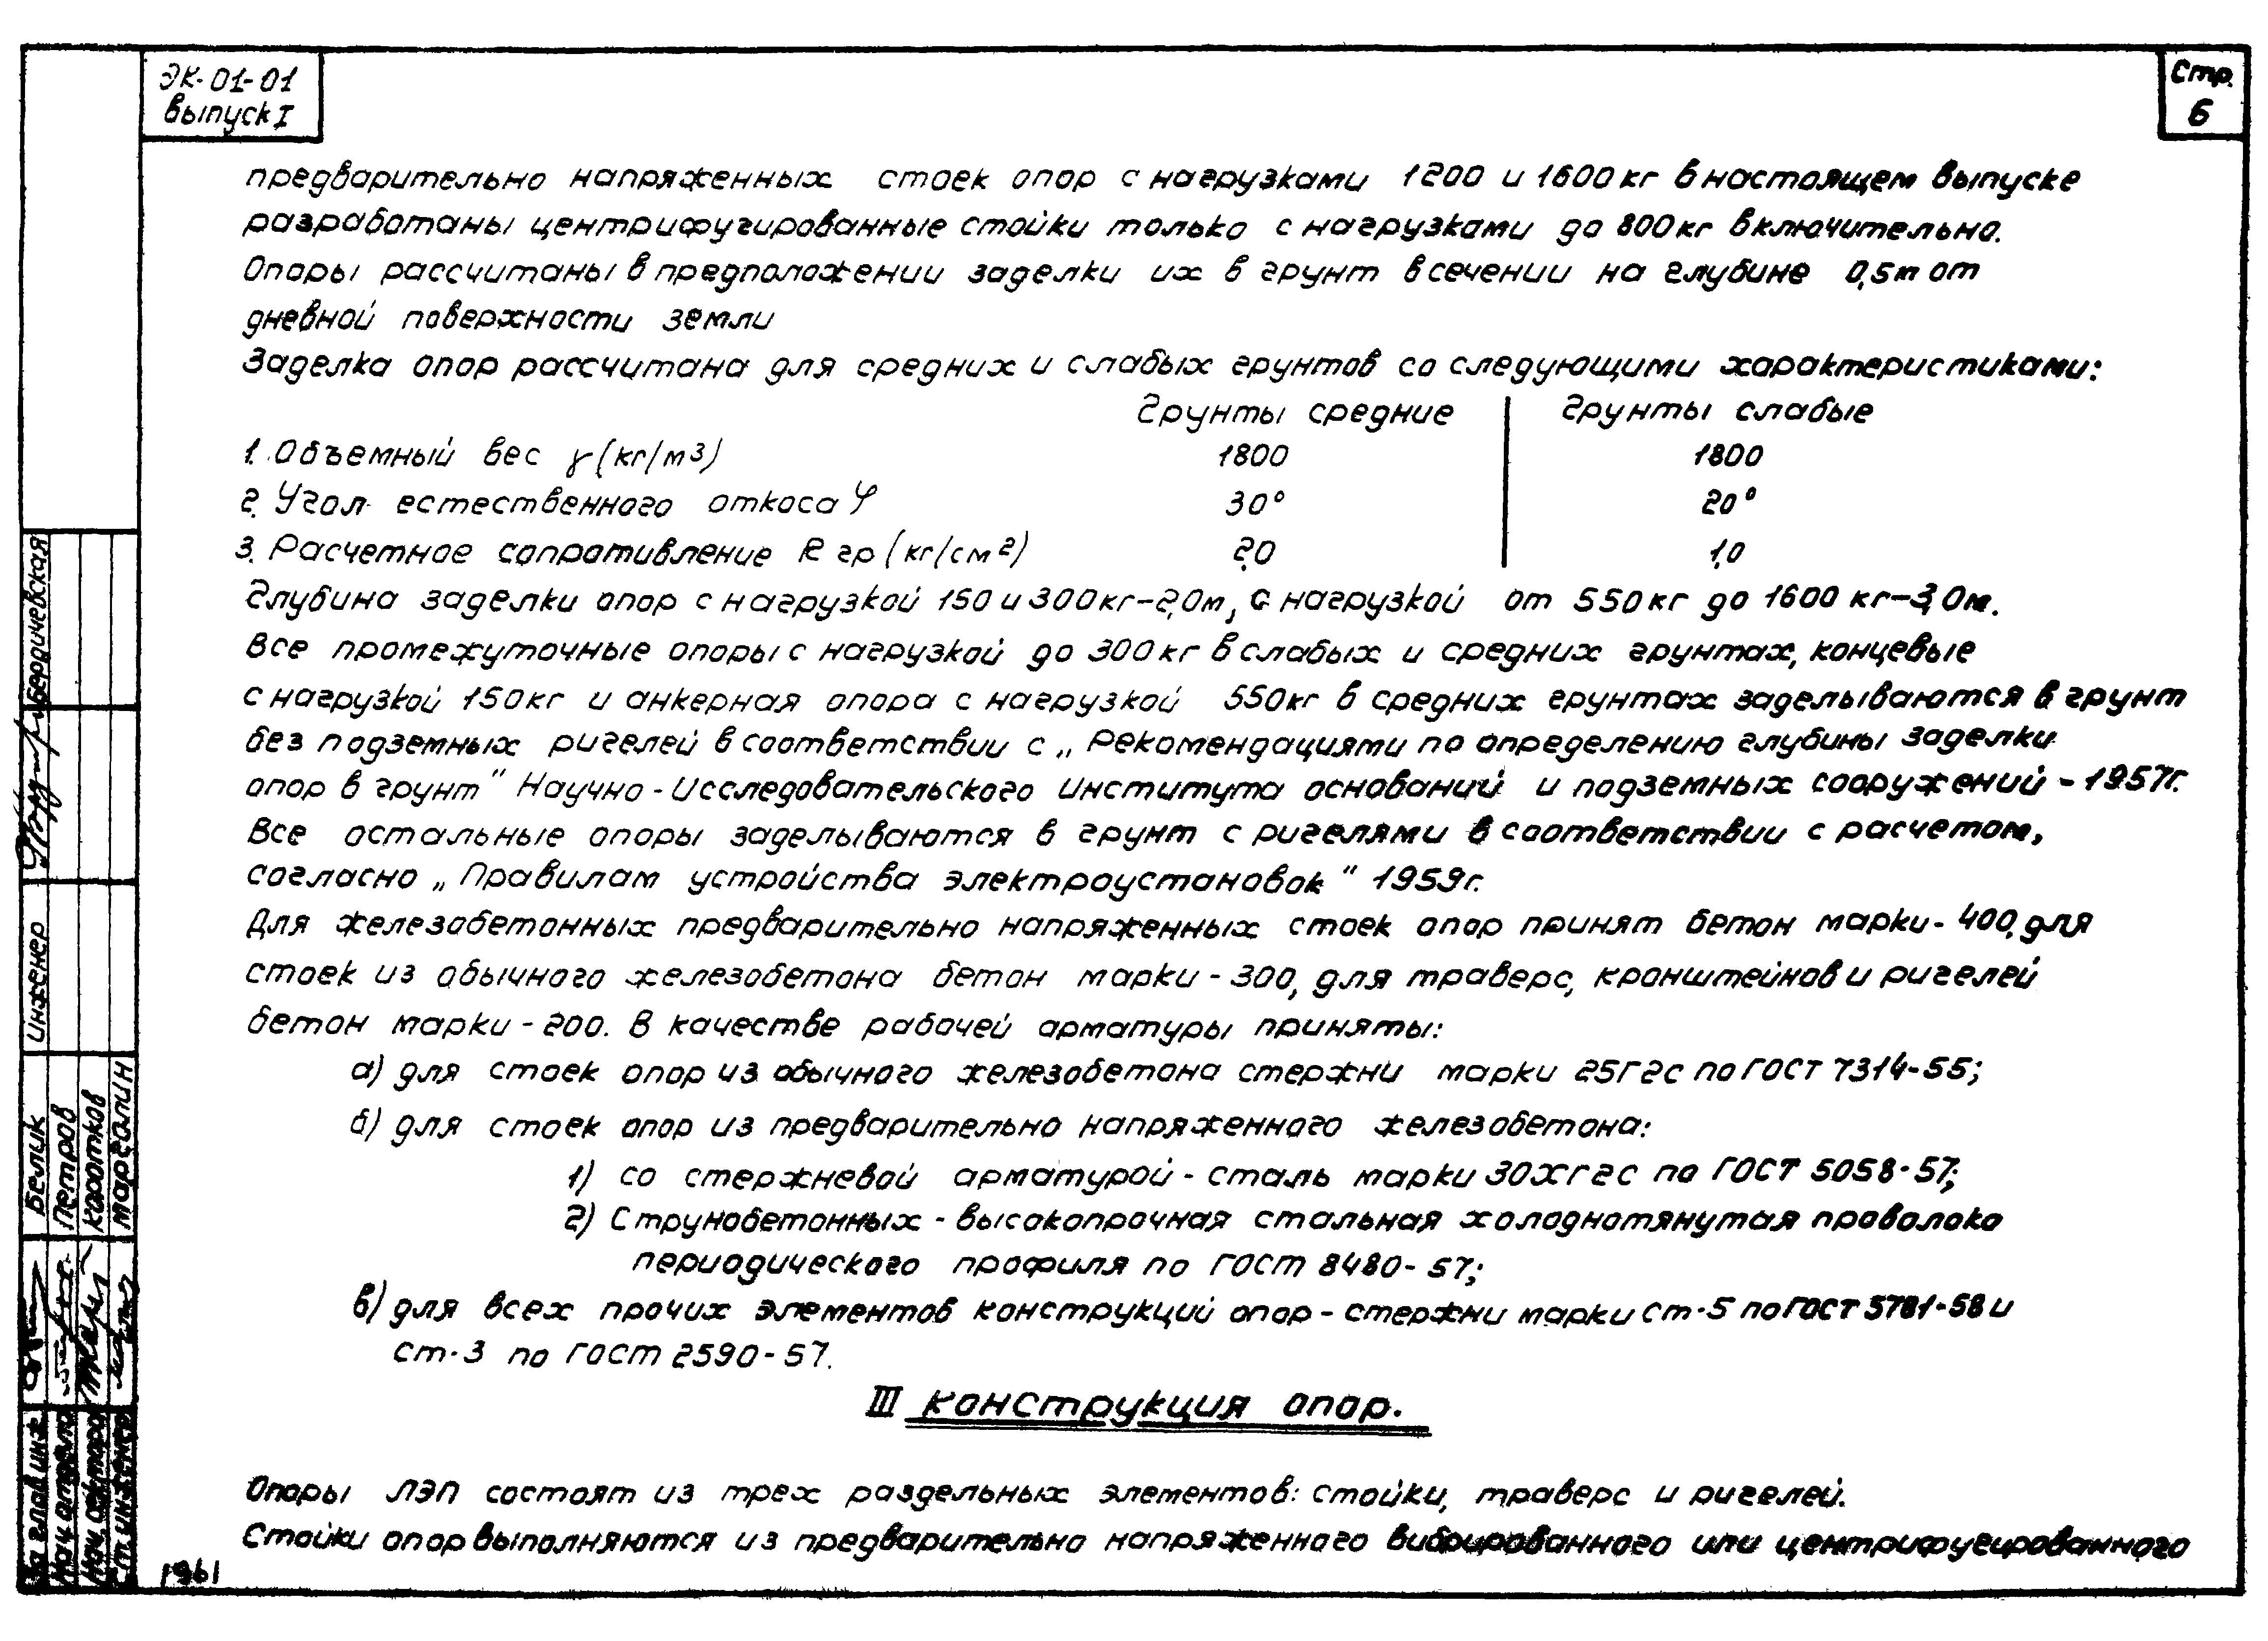 ЭК-01-01
выпуск I
Стр.
6
предварительно напряженных стоек опор с нагрузками 1200 и 1600 кг в настоящем выпуске
разработаны центрифугированные стойки только с нагрузками до 800 кг включительно.
Опоры рассчитаны в предположении заделки их в грунт в сечении на глубине 0,5 м от
дневной поверхности земли
Заделка опор рассчитана для средних и слабых грунтов со следующими характеристиками:
Грунты средние | Грунты слабые
1. Объемный вес γ (кг/м³) 1800 1800
2. Угол естественного откоса φ 30° 20°
3. Расчетное сопротивление R гр (кг/см²) 2,0 1,0
Глубина заделки опор с нагрузкой 150 и 300 кг – 2,0м, с нагрузкой от 550 кг до 1600 кг – 3,0м.
Все промежуточные опоры с нагрузкой до 300 кг в слабых и средних грунтах, концевые
с нагрузкой 150 кг и анкерная опора с нагрузкой 550 кг в средних грунтах заделываются в грунт
без подземных ригелей в соответствии с „Рекомендациями по определению глубины заделки
опор в грунт" Научно-Исследовательского Института оснований и подземных сооружений – 1957г.
Все остальные опоры заделываются в грунт с ригелями в соответствии с расчетом,
согласно „Правилам устройства электроустановок" 1959г.
Для железобетонных предварительно напряженных стоек опор принят бетон марки - 400, для
стоек из обычного железобетона бетон марки - 300, для траверс, кронштейнов и ригелей
бетон марки - 200. В качестве рабочей арматуры приняты:
а) для стоек опор из обычного железобетона стержни марки 25Г2С по ГОСТ 7314-55;
б) для стоек опор из предварительно напряженного железобетона:
1) со стержневой арматурой - сталь марки 30ХГ2С по ГОСТ 5058-57;
2) Струнобетонных - высокопрочная стальная холоднотянутая проволока
периодического профиля по ГОСТ 8480-57;
в) для всех прочих элементов конструкций опор - стержни марки Ст·5 по ГОСТ 5781-58 и
Ст·3 по ГОСТ 2590-57.
III Конструкция опор.
Опоры ЛЭП состоят из трех раздельных элементов: стойки, траверс и ригелей.
Стойки опор выполняются из предварительно напряженного вибрированного или центрифугированного
1961
Бердичевская
Инженер
Белик
Петров
Коротков
Марголин
Нач отдела
Нач. сектора
Ст. инженер